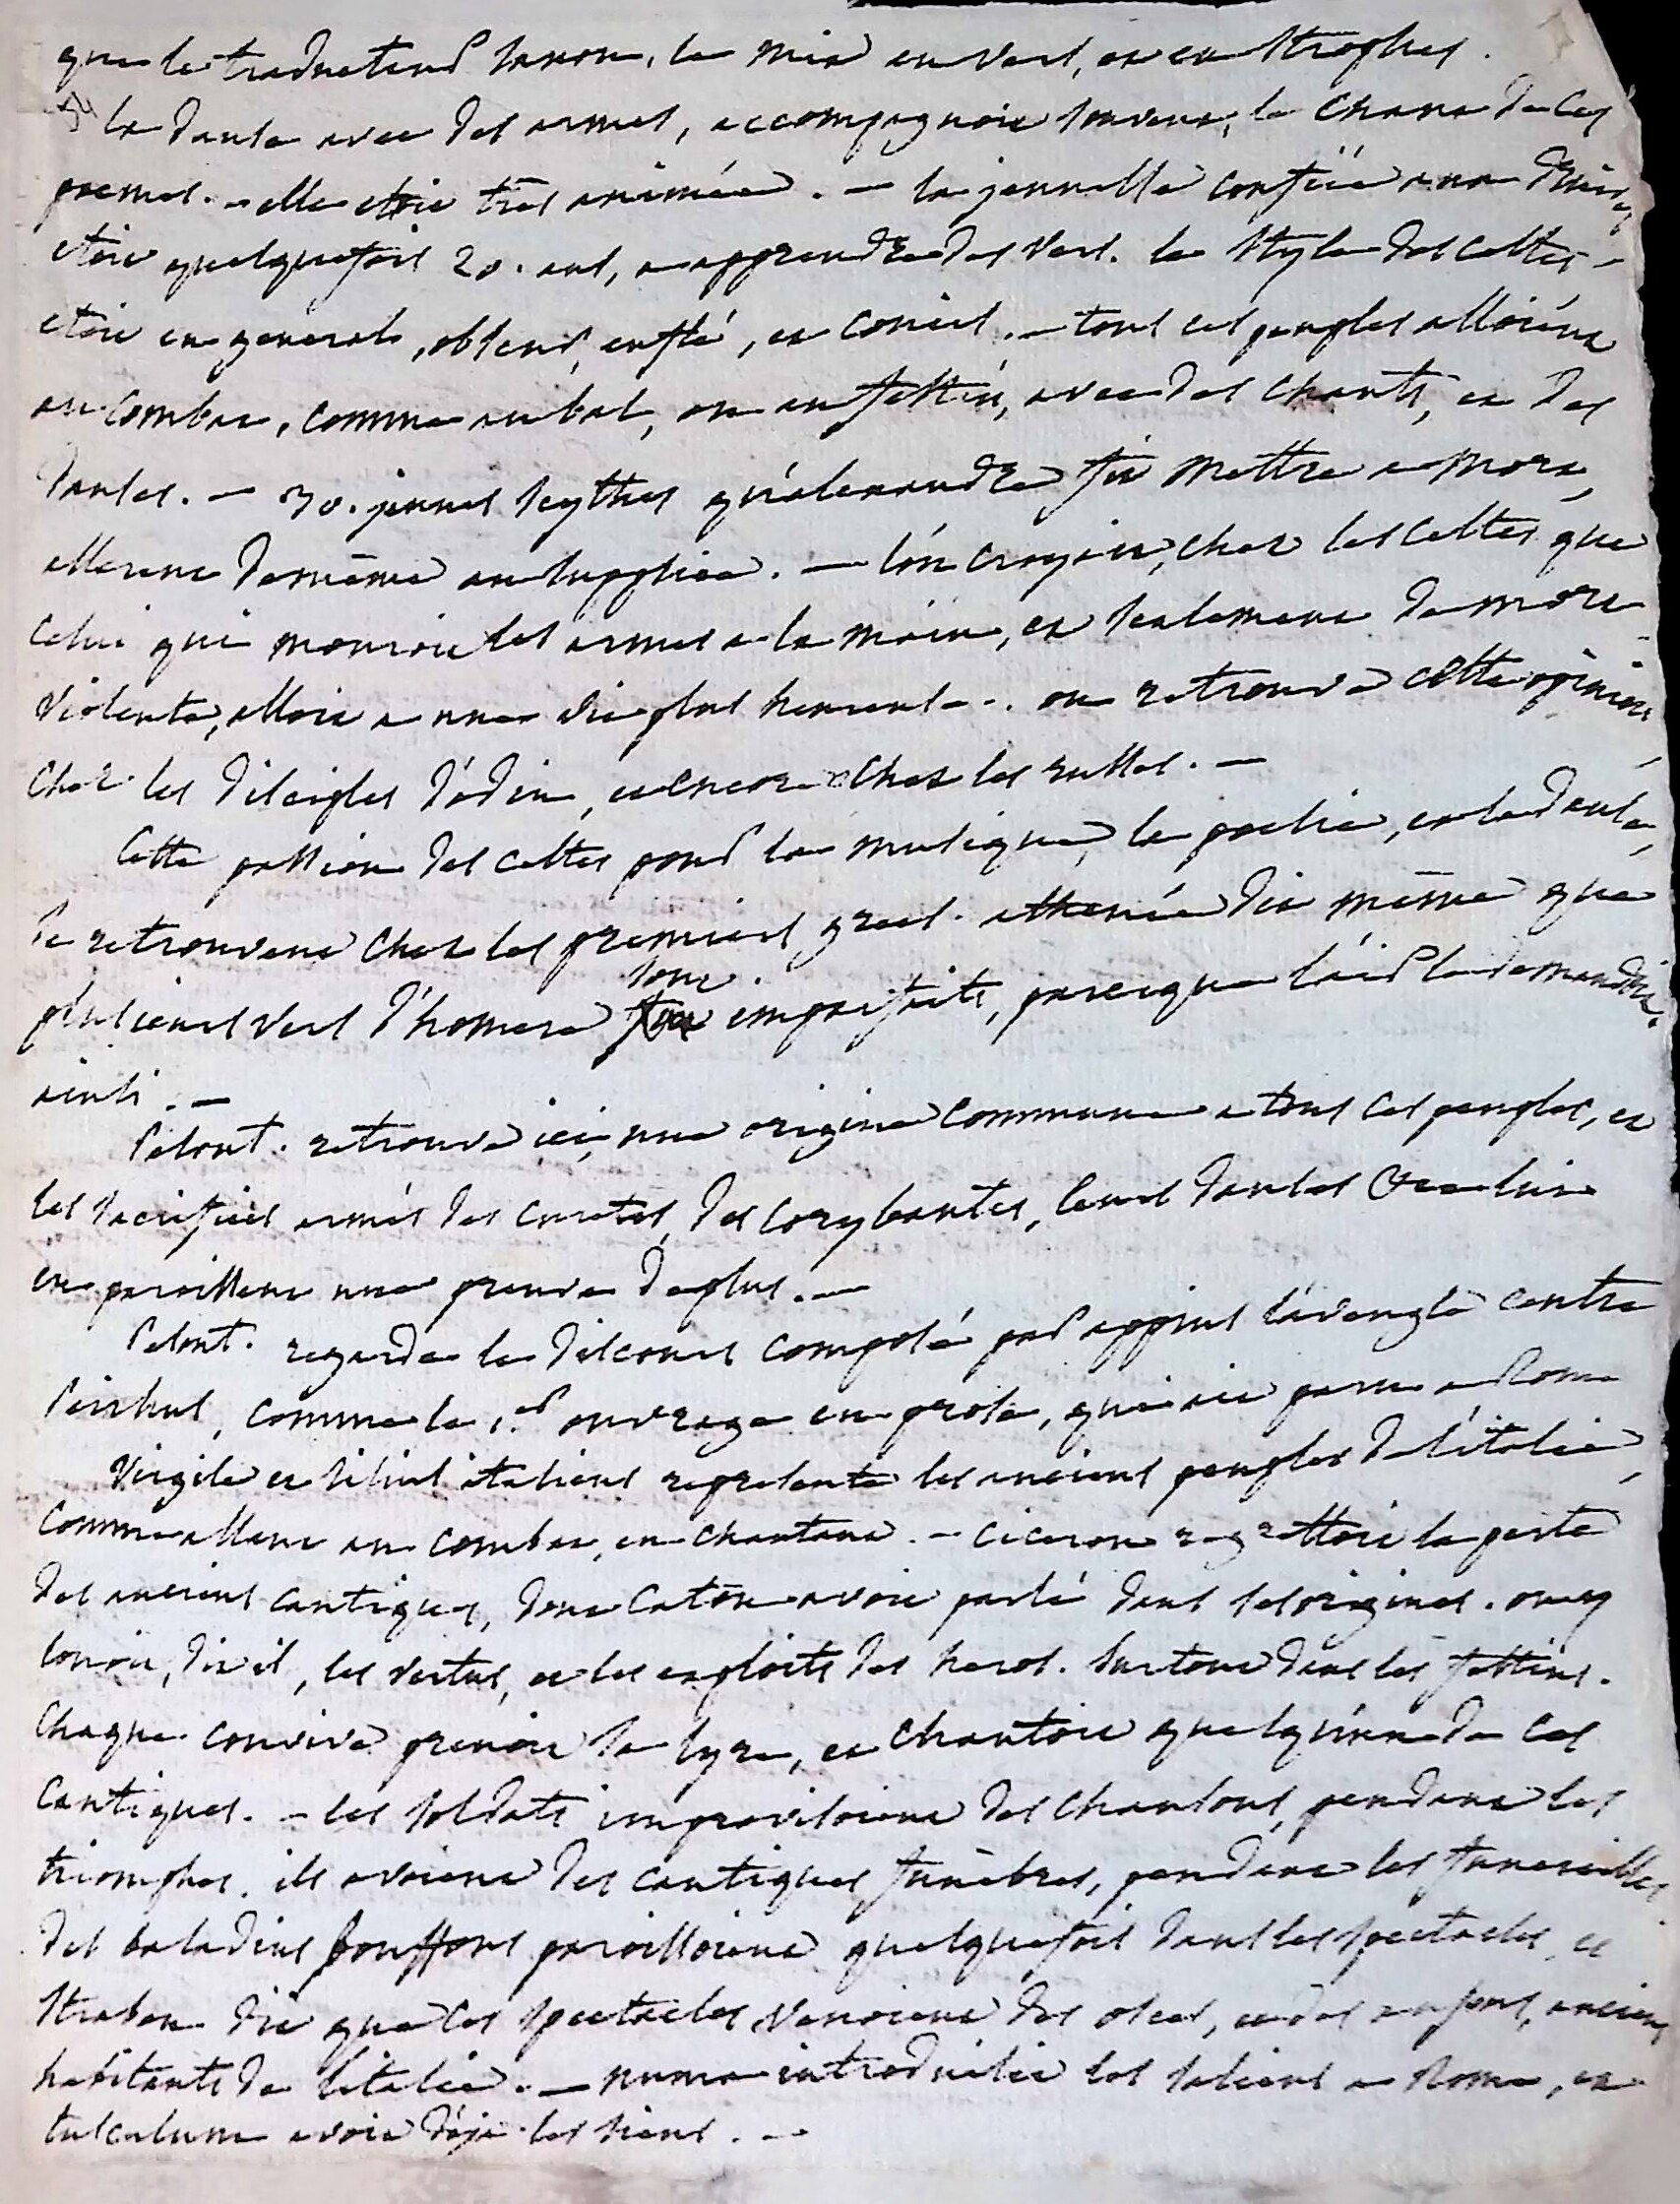 que le traducteur saxon, la mis en vers, et en strophes.
la danse avec des armes, accompagnoit souvent, le chant de ces
poemes. - elle etoit très animée. - la jeunesse confiée aux Druides
etoit quelquefois 20. ans, a apprendre des vers. le style des celtes -
etoit en general, obscur, enflé, et concis. - tous ces peuples alloient
au combat, comme au bal, ou au festin, avec des chants, et des
danses. - 30. jeunes scythes qu'alexandre fit mettre a mort,
allerent de même au supplice. - l'on croyoit, chez les celtes que
celui qui mouroit les armes a la main, et seulement de mort
violente, alloit a une vie plus heureuse. on retrouve cette opinion
chez les disciples d'odin, et encore chez les russes. -
Cette passion des celtes pour la musique, la poesie, et la danse,
se retrouvent chez les premiers grecs. athenée dit même que
plusieurs vers d'homere sont imparfaits, parceque l'air le demandoit
ainsi. -
Pelout. retrouve ici, une origine commune a tous ces peuples, et
les sacrifices armés des curetes, des corybantes, leurs danses
en paroissent une preuve de plus. -
Pelout. regarde le discours composé par appius l'aveugle contre
Pirrhus, comme le 1.er ouvrage en prose, qui ait paru a Rome
Virgile et silius italicus represente les anciens peuples de l'italie,
comme allant au combat, en chantant. - ciceron regrettoit la perte
des anciens cantiques, dont Caton avoit parlé dans ses origines. on y
louoit, dit il, les vertus, et les exploits des heros. surtout dans les festins.
Chaque convive prenoit la lyre, et chantoit quelqu'un de ces
cantiques. - les soldats improvisoient des chansons, pendant les
triomphes. ils avoient des cantiques funèbres, pendant les funerailles
des baladins bouffons paroissoient quelquefois dans les spectacles, et
Strabon dit que ces spectacles, venoient des osces, et des ausons, anciens
habitants de l'italie. - numa introduisit les saliens a Rome, et
tusculum avoit déja les siens. -